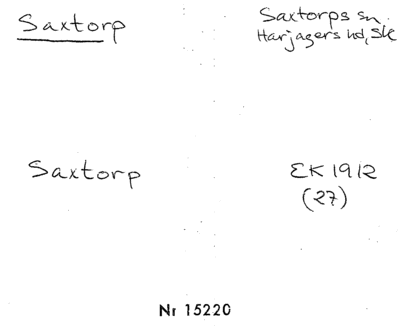 Saxtorp
Saxtorps sn.
Harjagers hd, Ske
Saxtorp
EK 1912
(27)
Nr 15220